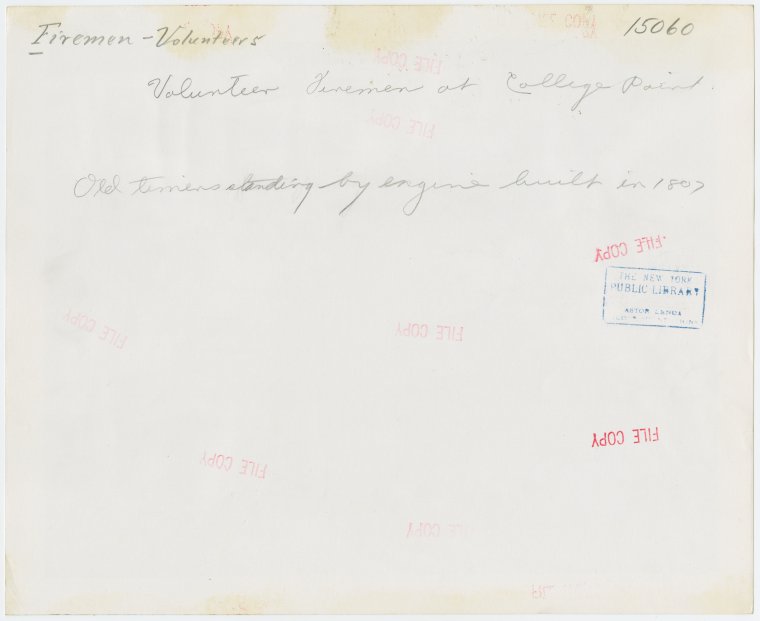 Firemen - Volunteers
15060
Volunteer Firemen at College Point.
FILE COPY
FILE COPY
Old timers standing by engine built in 1807
FILE COPY
THE NEW YORK
PUBLIC LIBRARY
ASTOR LENOX
FILE COPY
FILE COPY
FILE COPY
FILE COPY
FILE COPY